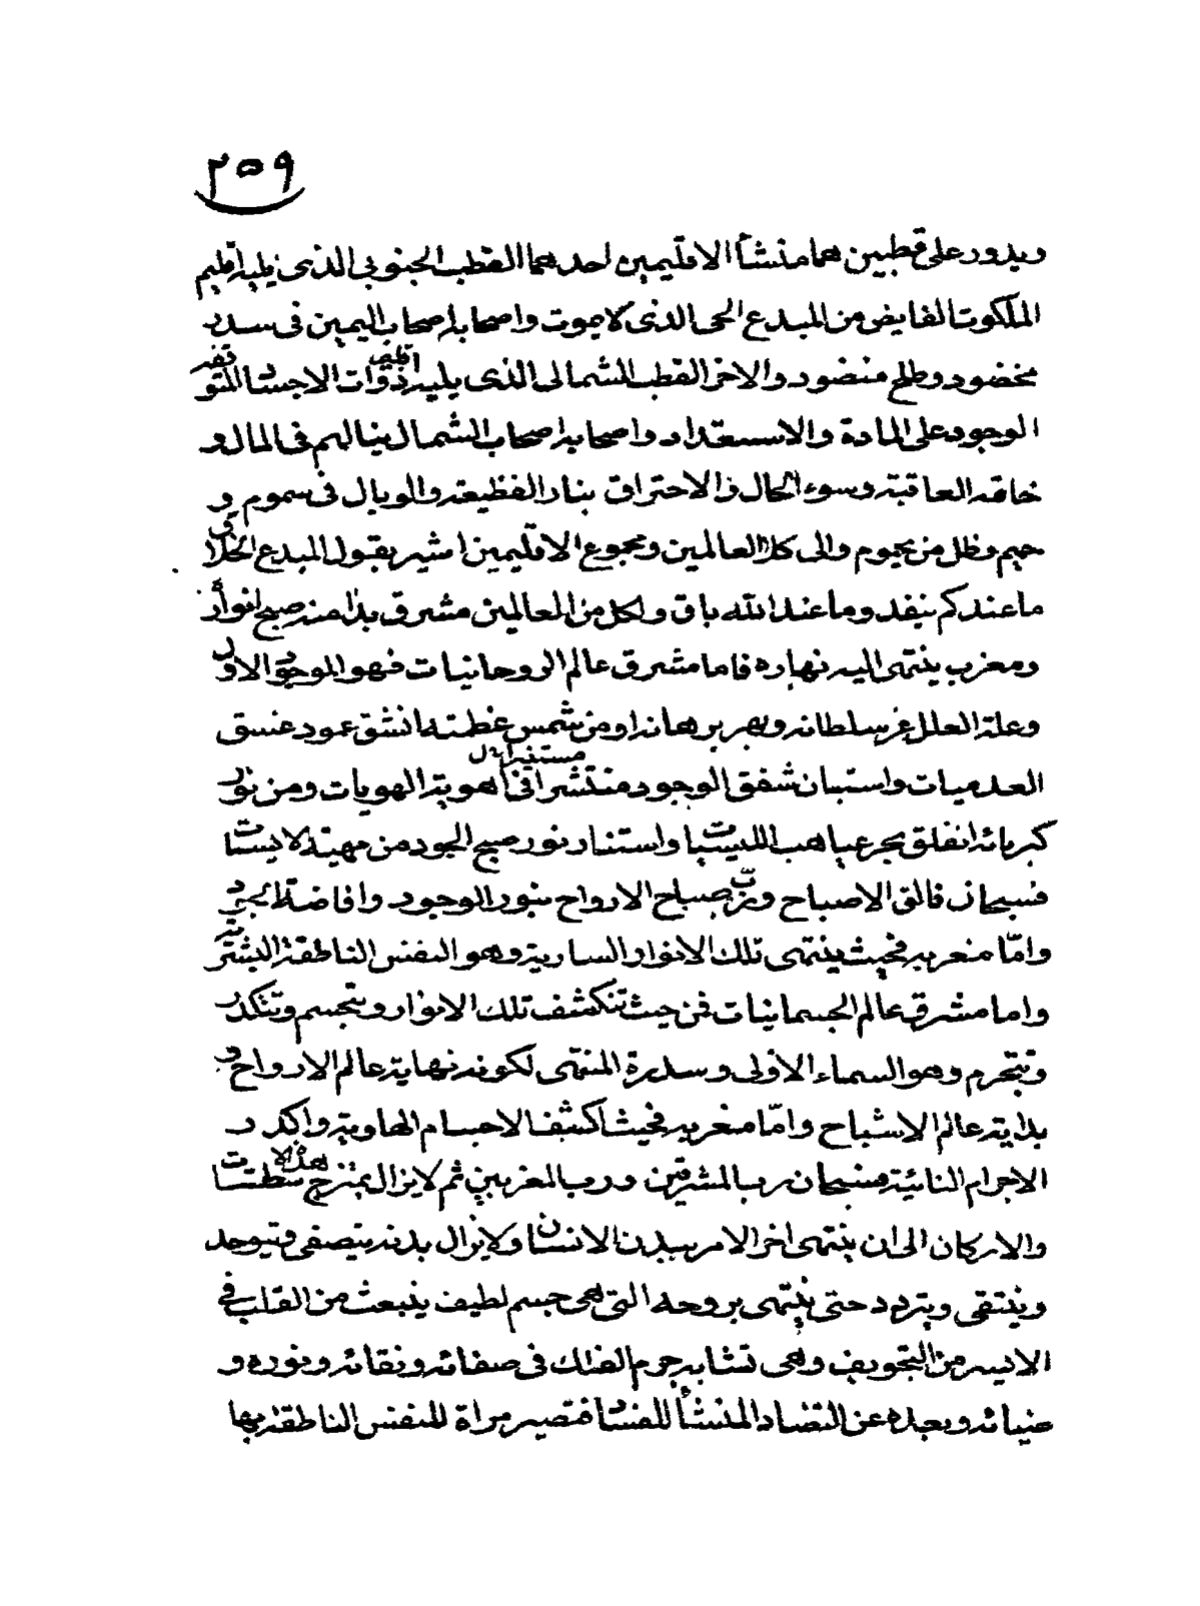 ٢٥٩
ويدور على قطبين هما منشأ الاقليمين احدهما القطب الجنوبى الذى يليه اقليم
الملكوت الفايض من المبدع الحى الذى لا يموت واصحابه اصحاب اليمين فى سدر
مخضود وطلح منضود والاخر القطب الشمالى الذى يليه اقليم ذوات الاجساد المتوقفه
الوجود على المادة والاستعداد واصحابه اصحاب الشمال ينالهم فى المال و
خاقه العاقبة وسوء الحال ذا الاحتراق بنار الفظيعة والوبال فى سموم و
حميم وظل من يحموم والى كلا العالمين ومجموع الاقليمين اشير بقول المبدع الخلاق
ما عندكم ينفد وما عند الله باق ولكل من العالمين مشرق بدا منه صبح انوار
ومغرب ينتهى اليه نهاره فاما مشرق عالم الروحانيات فهو الموجود الاول
وعلة العلل عز سلطانه وبهر برهانه او من شمس عظمته انشق عمود غسق
العدميات واستبان شفق الوجود منتشرا مستنيرا فى اهوية الهويات ومن نور
كبريائه انفلق بحر غياهب الليسيات واستنار نور صبح الجود من مهية الايسيات
فسبحان فالق الاصباح ورب صباح الارواح بنور الوجود وافاضة الجود
وامّا مغربه فحيث ينتهى تلك الانوار السارية وهو النفس الناطقة البشرية
واما مشرق عالم الجسمانيات فمن حيث تنكشف تلك الانوار ويتجسم وتتكدر
وتتجرم وهو السماء الاولى وسدرة المنتهى لكونه نهاية عالم الارواح و
بداية عالم الاشباح وامّا مغربه فحيث اكثف الاجسام الهاوية واكدر
الاجرام النائية فسبحان رب المشرقين ورب المغربين ثم لا يزال يمتزج هذه الاسطقسات
والاركان الى ان ينتهى اخر الامر ببدن الانسان ولا يزال بدنه يتصفى ويتوحد
وينتقى ويتردد حتى ينتهى بروحه التى هى جسم لطيف ينبعث من القلب فى
الايسر من التجويف وهى تشابه جرم الفلك فى صفائه ونقائه ونوره و
ضيائه وبعده عن التضاد المنشأ للفساد فتصير مراة للنفس الناطقة بها